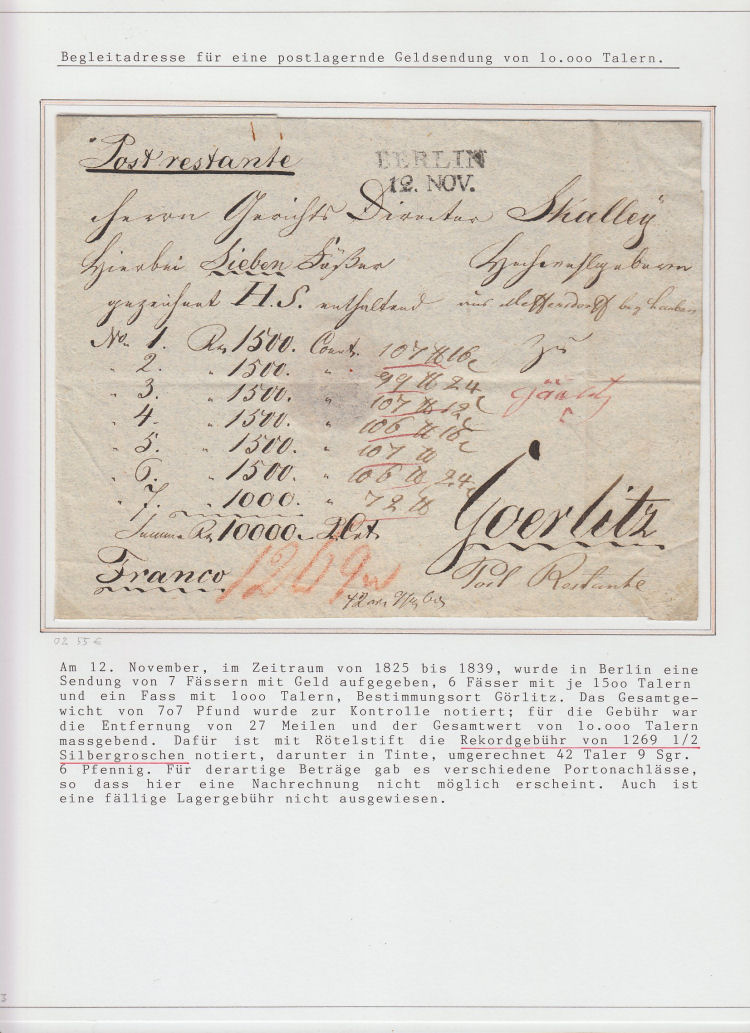 Begleitadresse für eine postlagernde Geldsendung von lo.ooo Talern.
Post restante
BERLIN
12. NOV.
Herrn Gerichts Director Skalley
Hierbei Sieben Fäßer Hochwohlgeboren
gezeichnet H. S. enthaltend aus Meffersdorff bey Lauban
No. 1. Rt 1500. Cour. 107 ℔ 16 zu
" 2. " 1500. " " 99 ℔ 24
" 3. " 1500. " 107 ℔ 12
" 4. " 1500. 106 ℔ 16
" 5. " 1500. " 107 ℔
" 6. " 1500. " 106 ℔ 24
" 7. " 1000. " 72 ℔
Summa Rt 10000
Goerlitz
Franco
1269 ½
Post Restante
02 55 €
Am 12. November, im Zeitraum von 1825 bis 1839, wurde in Berlin eine
Sendung von 7 Fässern mit Geld aufgegeben, 6 Fässer mit je 15oo Talern
und ein Fass mit looo Talern, Bestimmungsort Görlitz. Das Gesamtge-
wicht von 7o7 Pfund wurde zur Kontrolle notiert; für die Gebühr war
die Entfernung von 27 Meilen und der Gesamtwert von lo.ooo Talern
massgebend. Dafür ist mit Rötelstift die Rekordgebühr von 1269 1/2
Silbergroschen notiert, darunter in Tinte, umgerechnet 42 Taler 9 Sgr.
6 Pfennig. Für derartige Beträge gab es verschiedene Portonachlässe,
so dass hier eine Nachrechnung nicht möglich erscheint. Auch ist
eine fällige Lagergebühr nicht ausgewiesen.
3